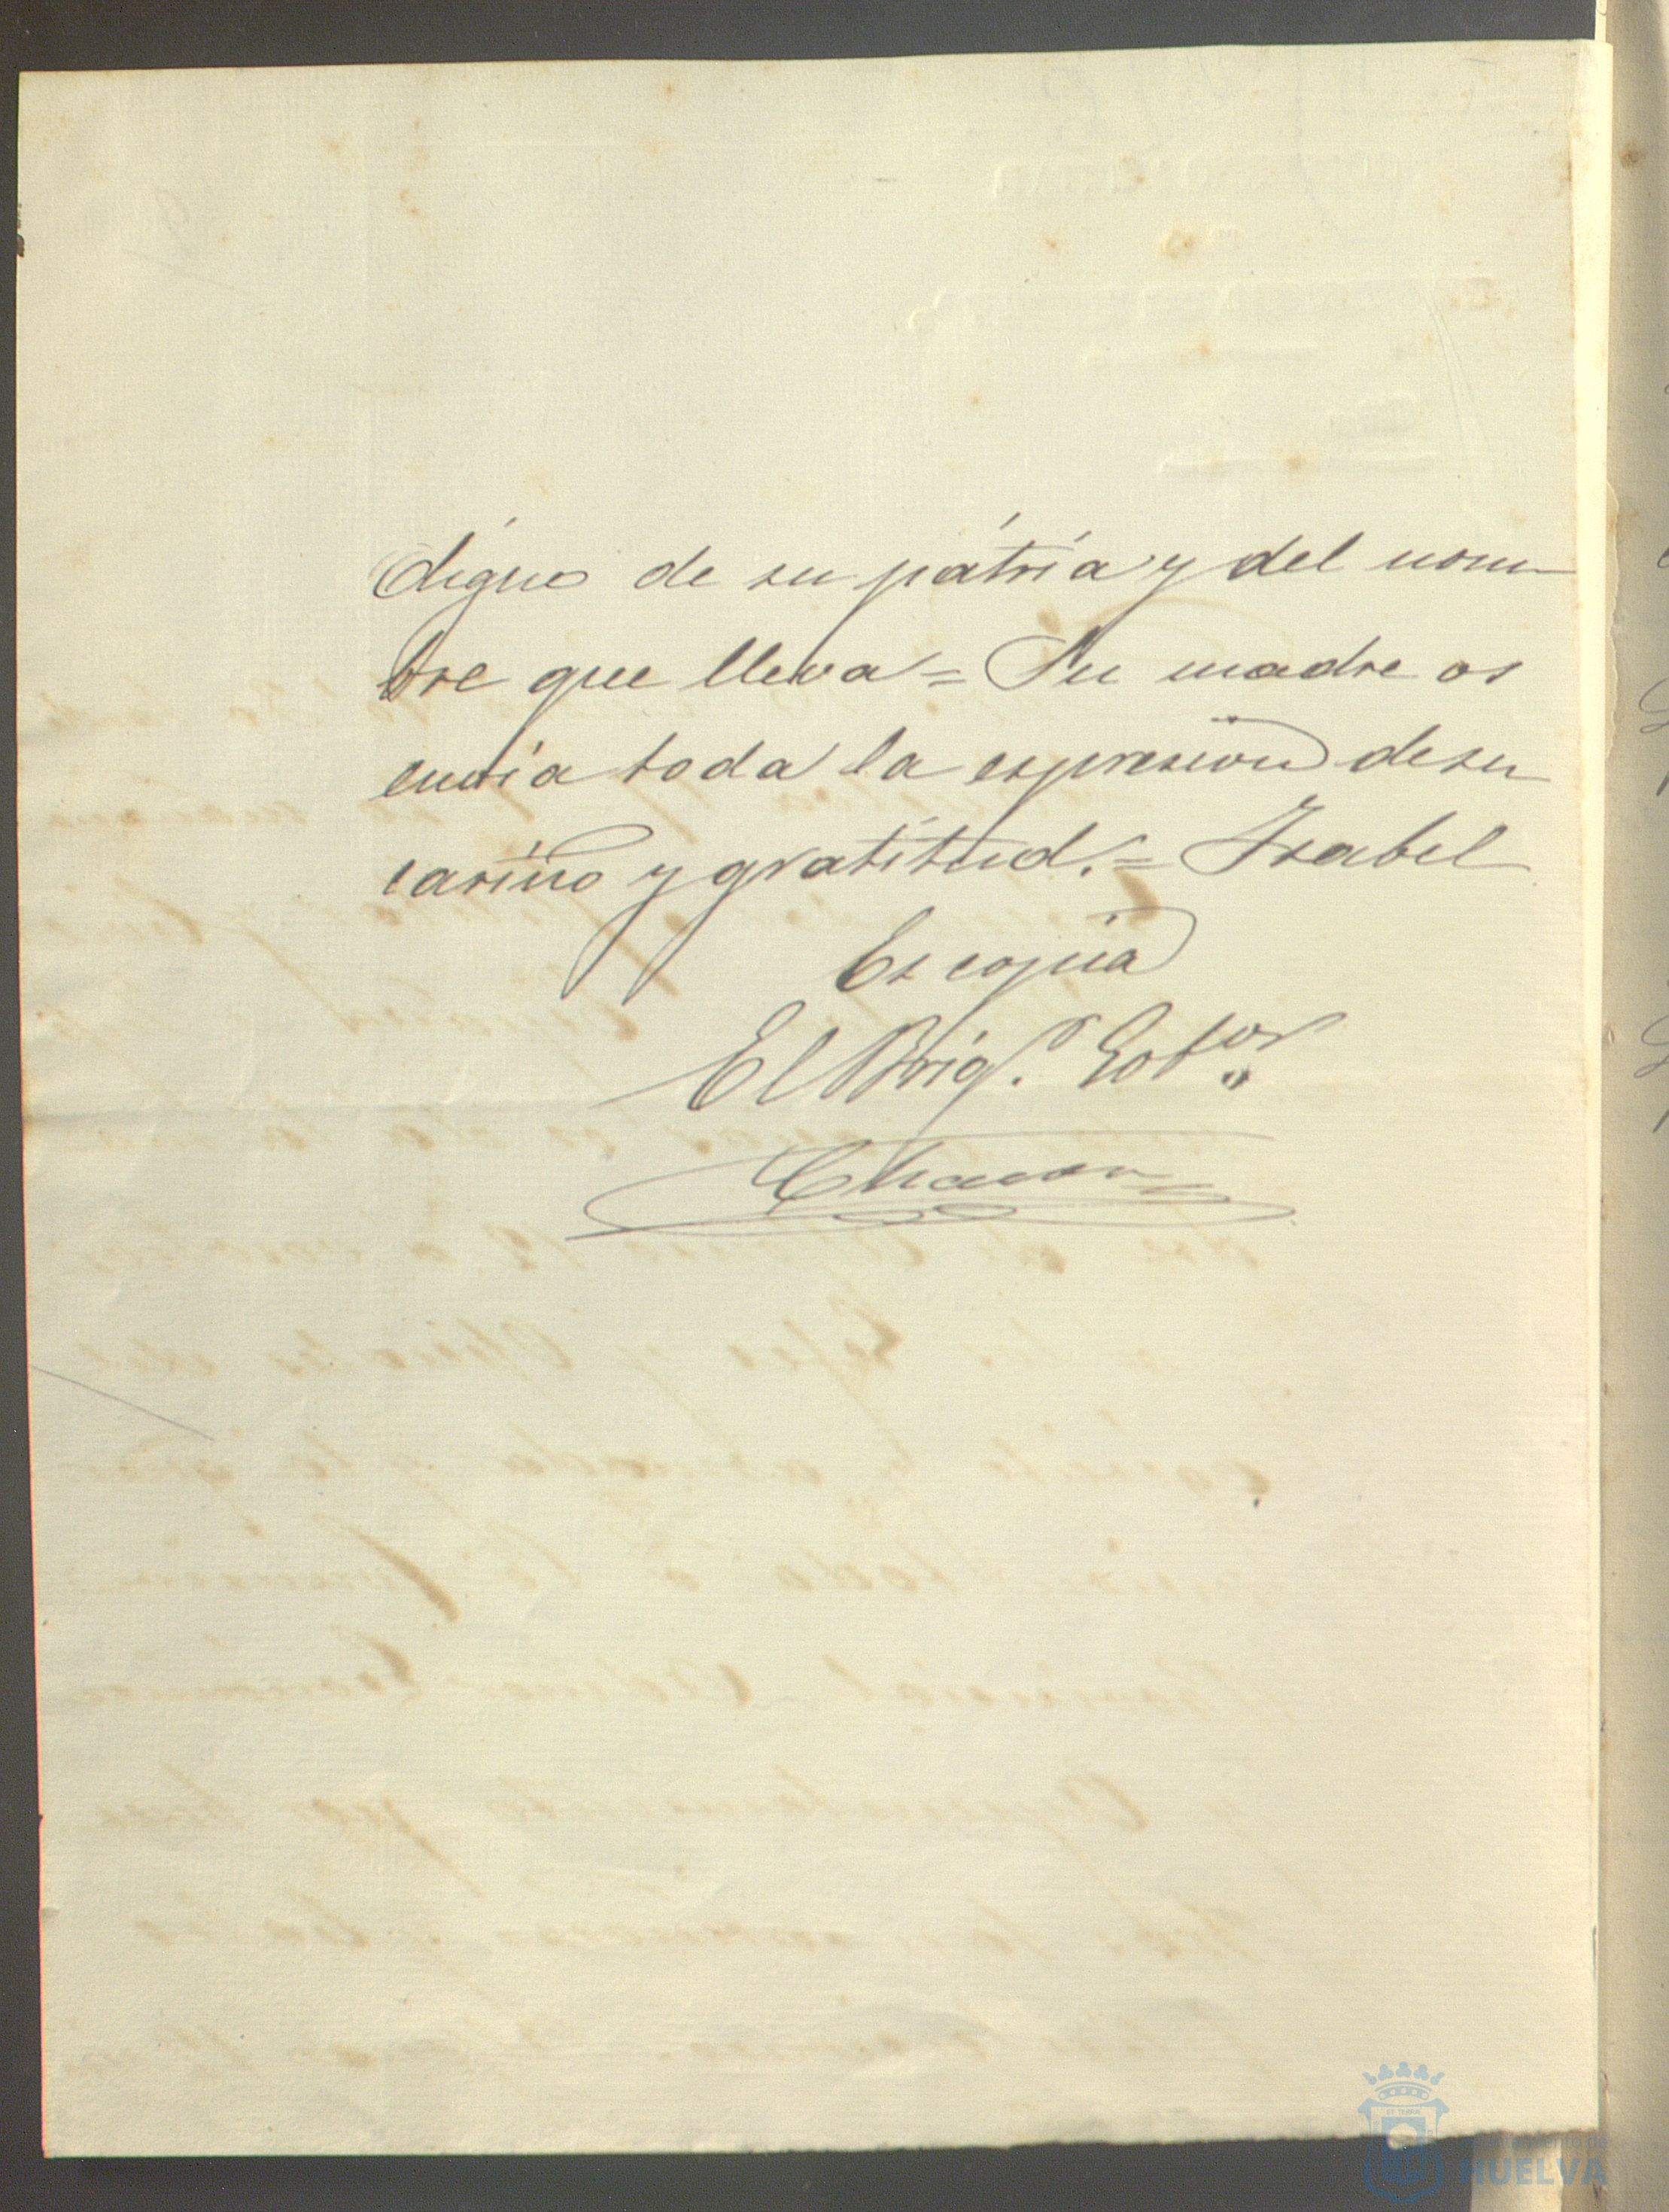 digno de su pátria y del nom-
bre que lleva = Su madre os
envia toda la espresion de su
cariño y gratitud. = Isabel
Es copia
El Brig.r Gob.or
Chacon
HUELVA